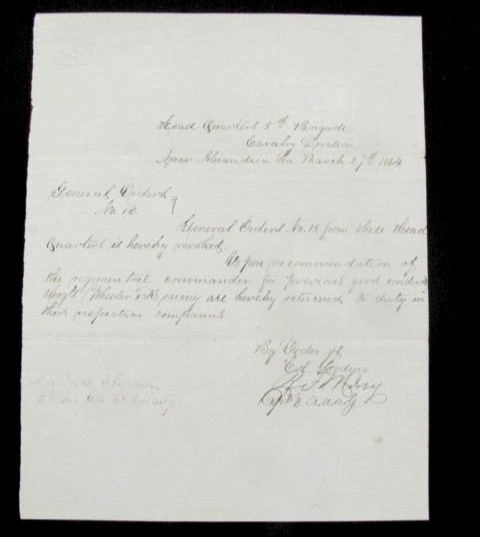 Head Quarters 5th Brigade
Cavalry Division
Near Alexandria La March 27th 1864
General Orders }
No. 16
General Orders No. 15 from these Head
Quarters is hereby revoked.
Upon recommendation of
the regimental commander for previous good conduct
Serg't Wheeler & Kenney are hereby returned to duty in
their respective companies
By Order of
Col Gooding
Capt & A.A.A.G.